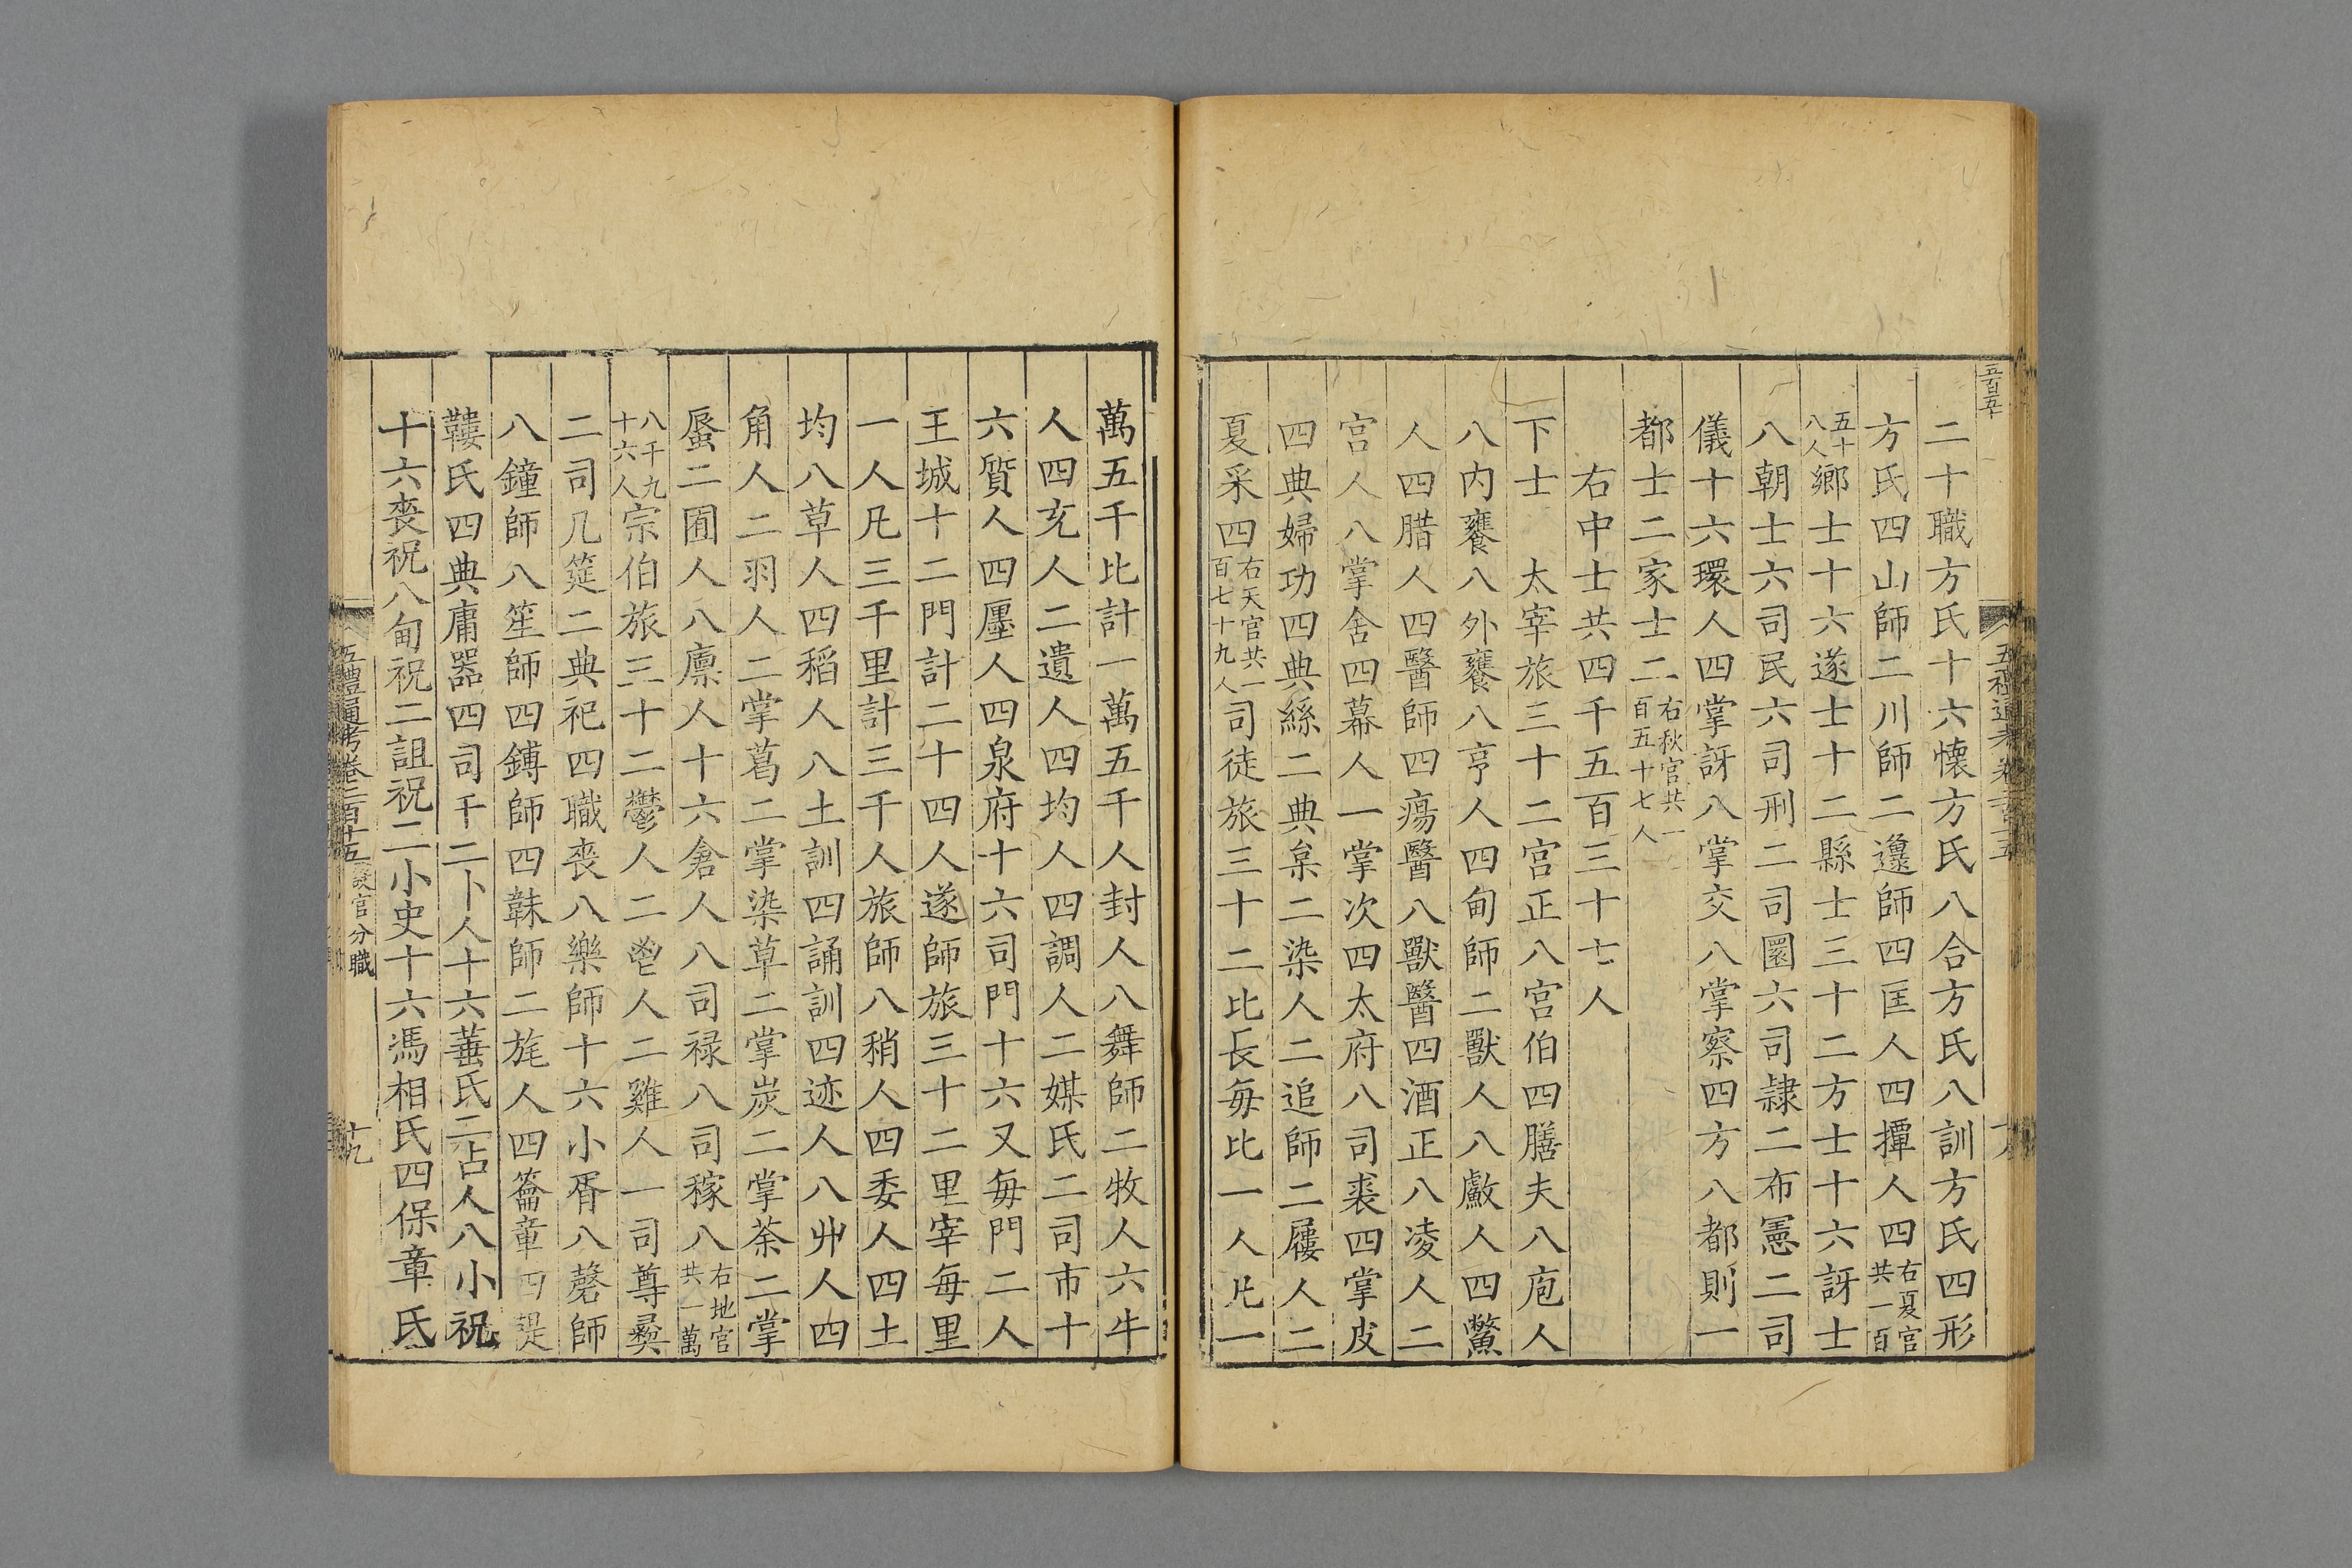 二十職方氏十六懐方氏八合方氏八訓方氏四形
方氏四山師二川師二邍師四匡人四撢人四右夏官共一百
五十八人鄉士十六遂士十二縣士三十二方士十六訝士
八朝士六司民六司刑二司圜六司隸二布憲二司
儀十六環人四掌訝八掌交八掌察四方八都則一
都士二家士二右秋官共一百五十七人
右中士共四千五百三十七人
下士　太宰旅三十二宮正八宮伯四膳夫八庖人
八内饔八外饔八亨人四甸師二獸人八䱷人四鱉
人四腊人四醫師四瘍醫八獸醫四酒正八凌人二
宮人八掌舍四幕人一掌次四太府八司裘四掌皮
四典婦功四典絲二典枲二染人二追師二屨人二
夏采四右天官共一百七十九人司徒旅三十二比長每比一人凡一
萬五千比計一萬五千人封人八舞師二牧人六牛
人四充人二遺人四均人四調人二媒氏二司市十
六質人四廛人四泉府十六司門十六又每門二人
王城十二門計二十四人遂師旅三十二里宰每里
一人凡三千里計三千人旅師八稍人四委人四土
均八草人四稻人八土訓四誦訓四迹人八丱人四
角人二羽人二掌葛二掌染草二掌炭二掌荼二掌
蜃二囿人八廪人十六倉人八司禄八司稼八右地官共一萬
八千九十六人宗伯旅三十二鬱人二鬯人二雞人一司尊彞
二司几筵二典祀四職喪八樂師十六小胥八磬師
八鐘師八笙師四鎛師四韎師二旄人四籥章四鞮
鞻氏四典庸器四司干二卜人十六菙氏二占人八小祝
十六喪祝八甸祝二詛祝二小史十六馮相氏四保章氏
五禮通考卷二百十五設官分職
十九